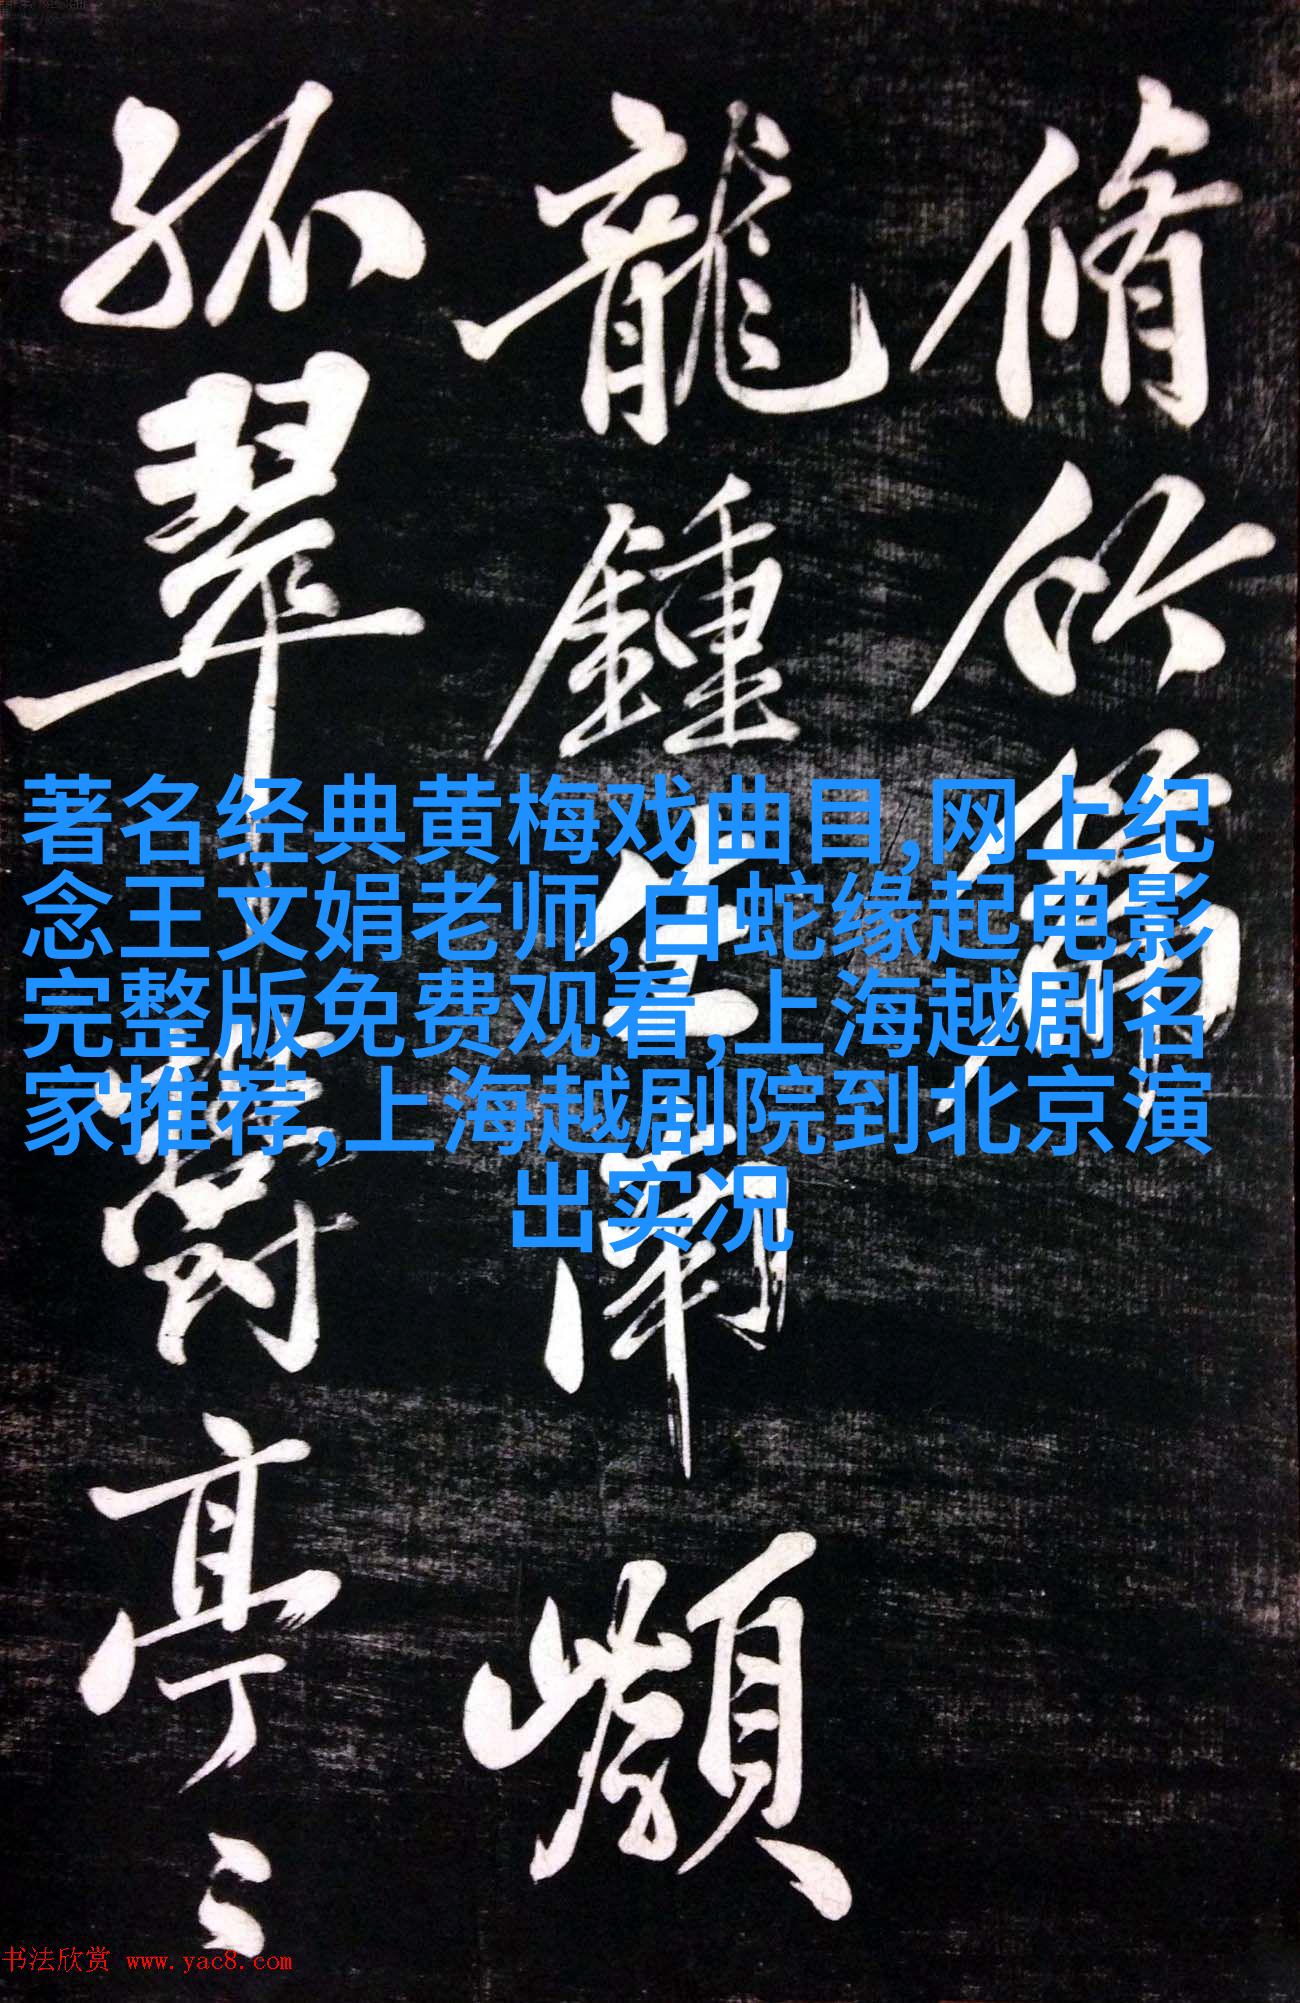 脩竹篇
龍鍾生南
孤翠亭
著名经典黄梅戏曲目,网上纪
念王文娟老师,白蛇缘起电影
完整版免费观看,上海越剧名
家推荐,上海越剧院到北京演
出实况
书法欣赏 www.yac8.com